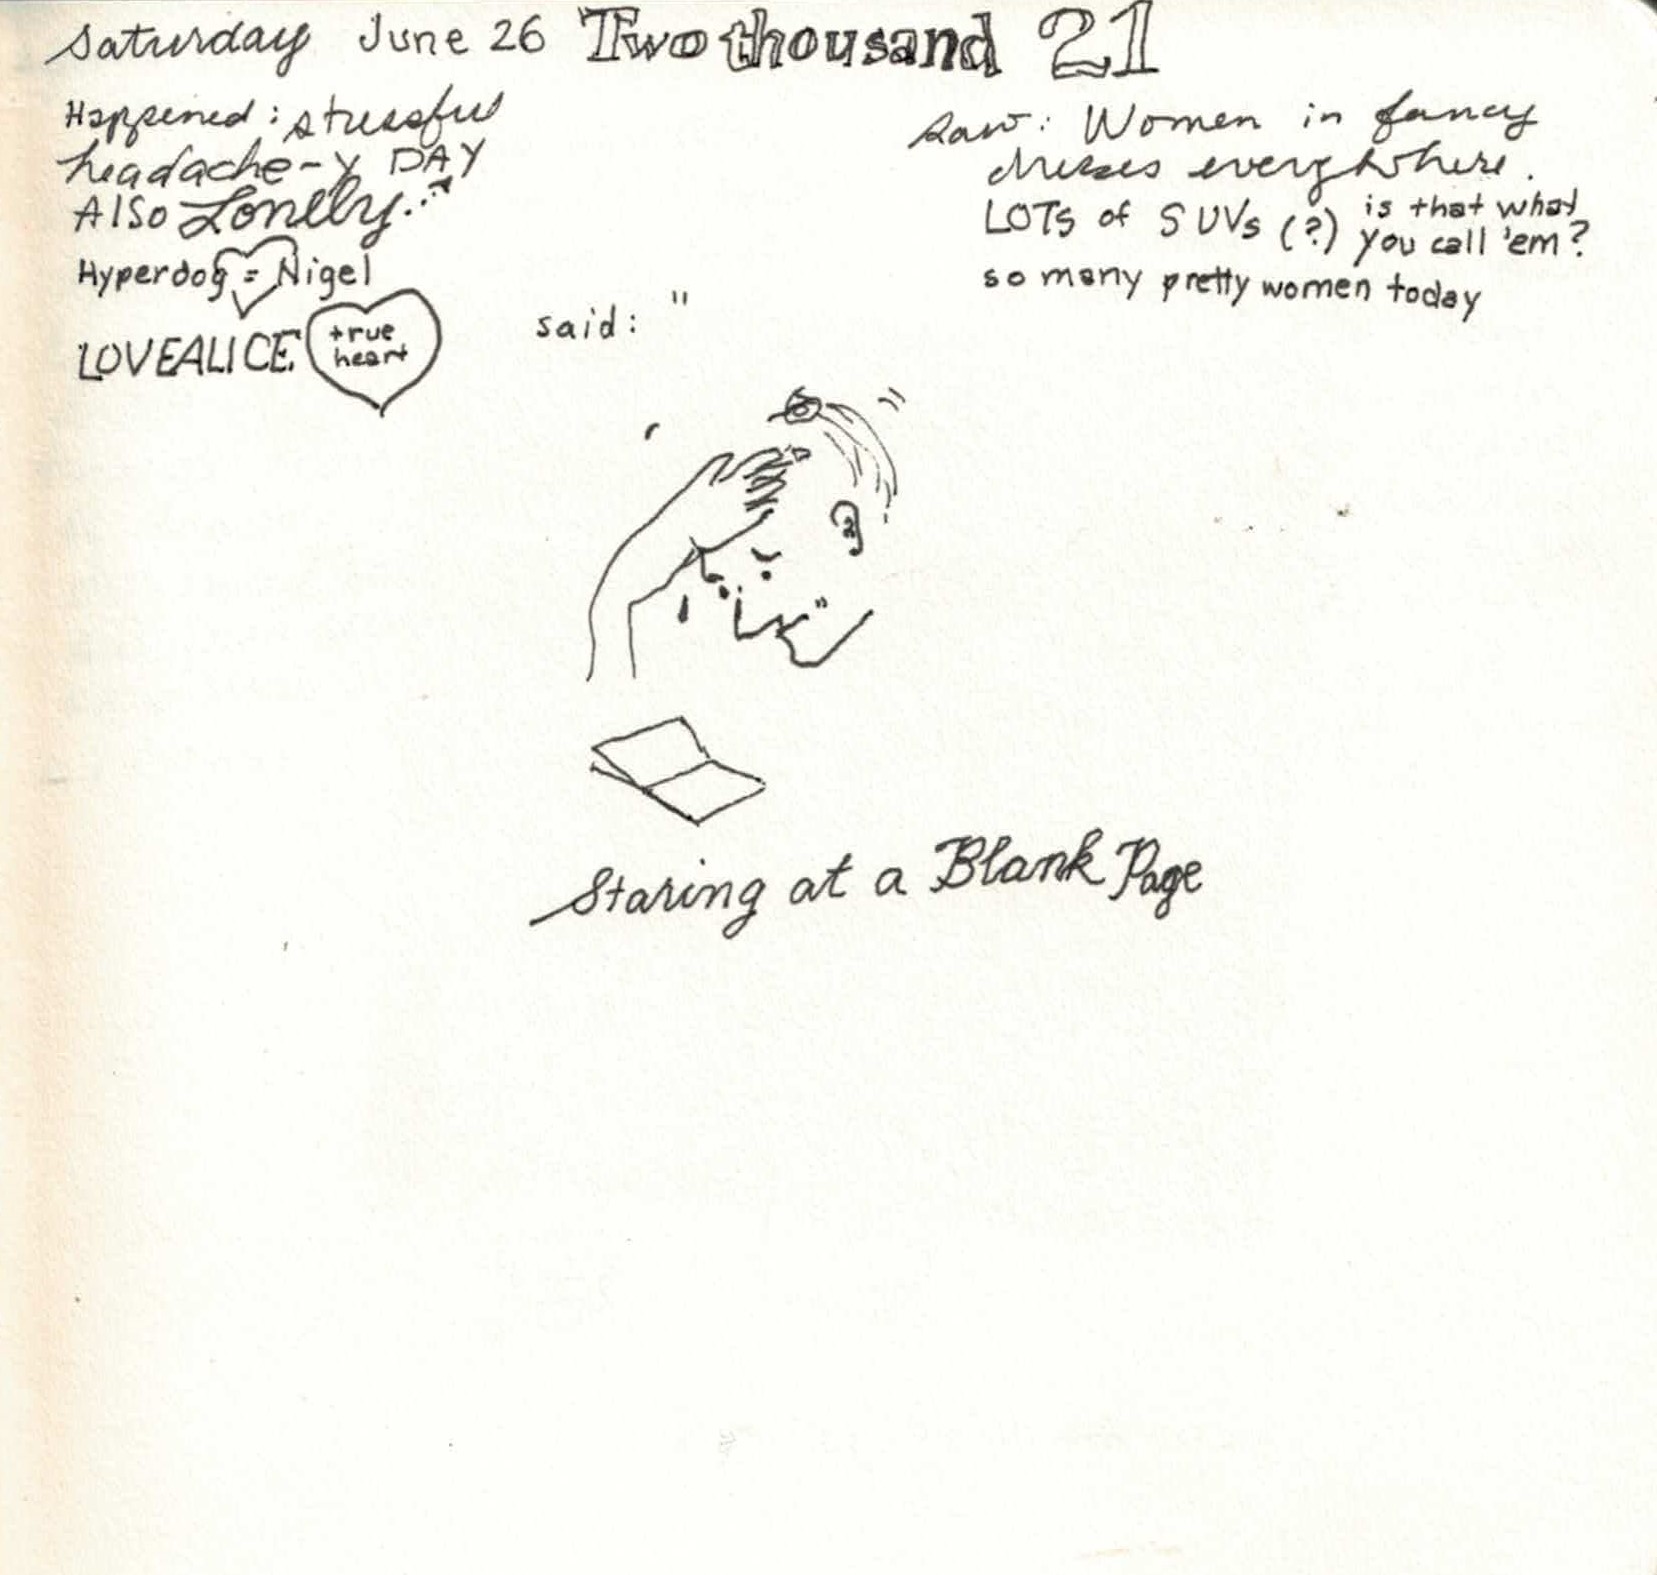 Saturday June 26 Two thousand 21
Happened: stressful
headache-y DAY
Also Lonelly...
Hyperdog = Nigel
LOVEALICE true
heart
said: "
Saw: Women in fancy
dresses everywhere.
LOTs of SUVs (?) is that what
you call 'em?
so many pretty women today
Staring at a Blank Page